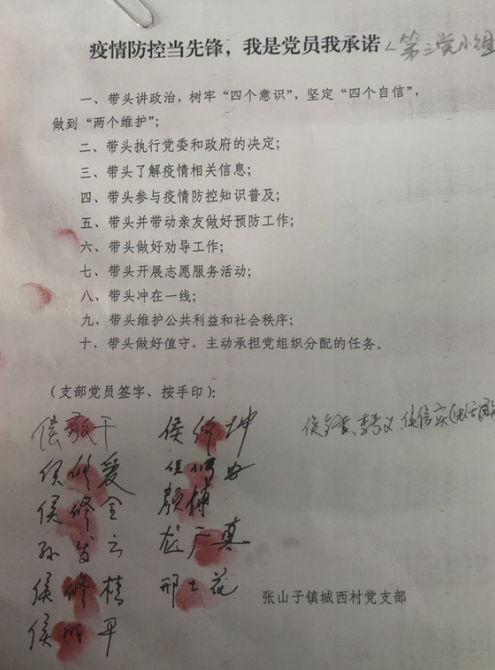 疫情防控当先锋，我是党员我承诺（第三党小组
一、带头讲政治，树牢“四个意识”，坚定“四个自信”，
做到“两个维护”；
二、带头执行党委和政府的决定；
三、带头了解疫情相关信息；
四、带头参与疫情防控知识普及；
五、带头并带动亲友做好预防工作；
六、带头做好劝导工作；
七、带头开展志愿服务活动；
八、带头冲在一线；
九、带头维护公共利益和社会秩序；
十、带头做好值守，主动承担党组织分配的任务。
（支部党员签字、按手印）：
侯敬干 侯修坤
侯修爱
侯修全 颜博
孙发云 广真
侯修桂 邢士花
侯 平
张山子镇城西村党支部